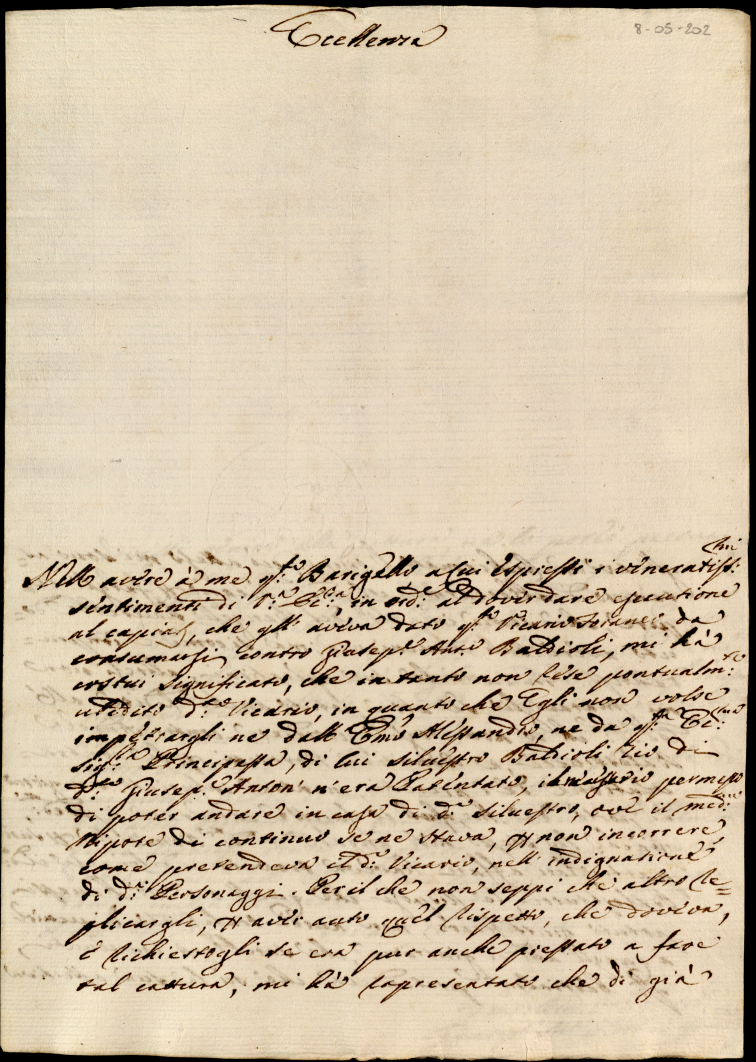 Eccellenza
8-05-202
Nell avere à me q.to Barigello, a cui espressi i veneratiss.mi
sentimenti di V.a Ecc.a in ord.e al dover dare esecutione
al capias, che gli aveva dato q.to Vicario da
consumarsi contro Giusep.e Ant.o Baldioli, mi hà
costui significato, che in tanto non rese pontualm.te
ubidito d.to Vicario, in quanto che Egli non volse
impetrargli ne dall' Em.o Alessandro, ne da q.sta Ecc.ma
Sig.ra Principessa, di lui Silvestro Baldioli zio di
d.to Giusep.e Anton' n'era Patentato, il permesso
di poter andare in casa di d.to Silvestro, ove il med.mo
Nipote di continuo se ne stava, p non incorrere,
come pretendeva il d.to Vicario, nell' indignazione
di d.ti Personaggi. Per il che non seppi che altro re=
plicargli, p aver auto quel rispetto, che doveva,
e richiestogli se era pur anche pressato a fare
tal cattura, mi hà rapresentato che di già